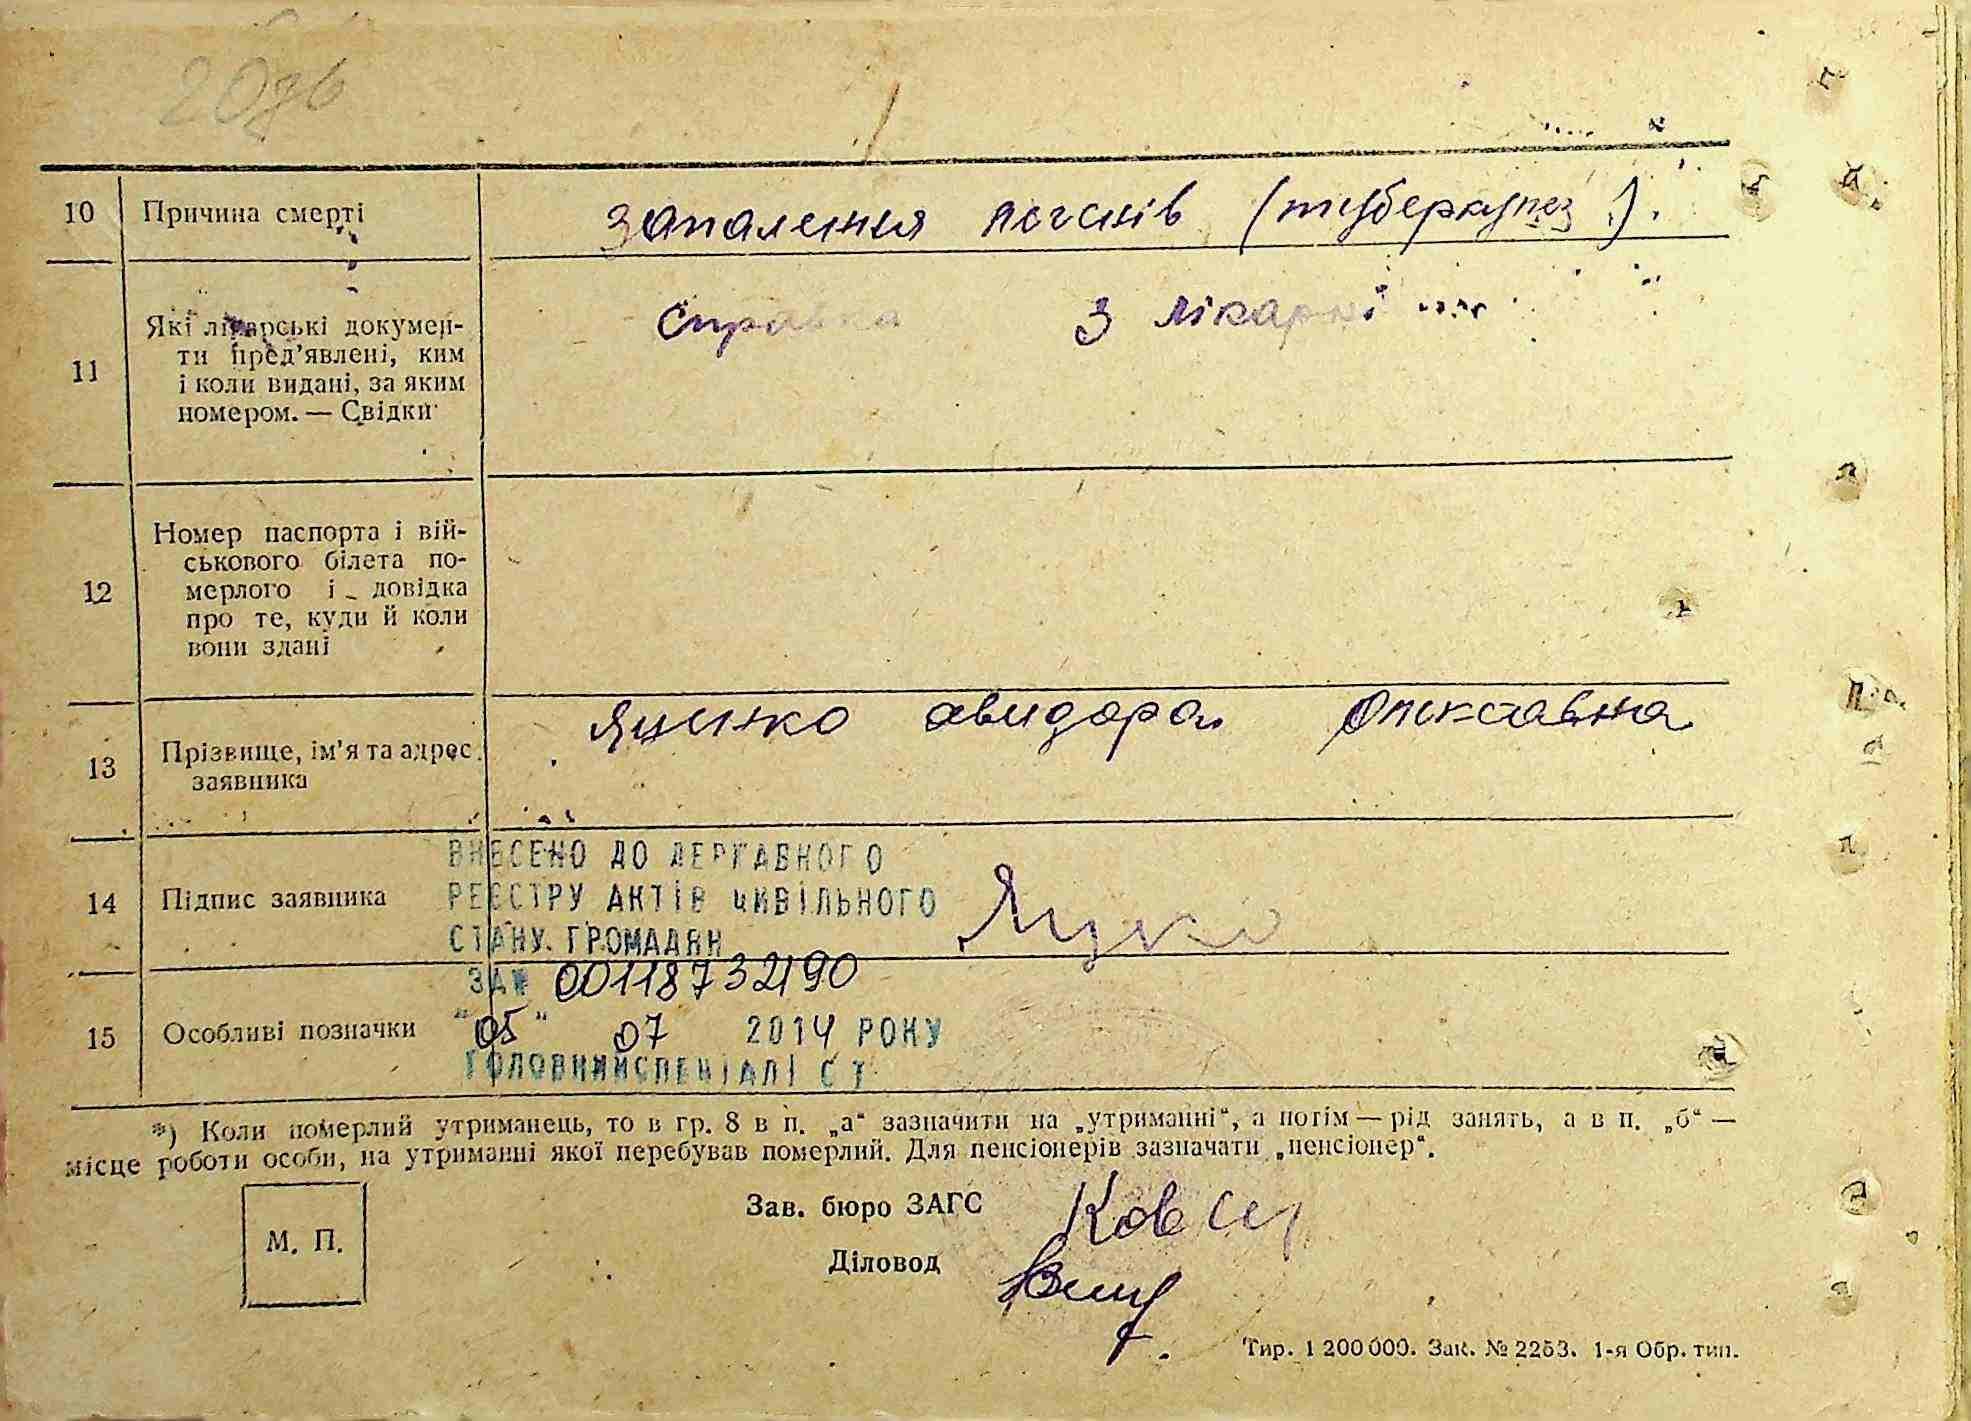 10 Причина смерті запалення легенів (туберкульоз).
11 Які лікарські докумен-
ти пред'явлені, ким
і коли видані, за яким
номером. — Свідки
справка з лікарні
12 Номер паспорта і вій-
ськового білета по-
мерлого і довідка
про те, куди й коли
вони здані
13 Прізвище, ім'я та адрес
заявника
Яценко
14 Підпис заявника
ВНЕСЕНО ДО ДЕРЖАВНОГО
РЕЄСТРУ АКТІВ ЦИВІЛЬНОГО
СТАНУ ГРОМАДЯН
ЗА № 00118732190
15 Особливі позначки
"05" 07 2014 РОКУ
ГОЛОВНИЙ СПЕЦІАЛІСТ
*) Коли померлий утриманець, то в гр. 8 в п. „а“ зазначити на „утриманні“, а потім — рід занять, а в п. „б“ —
місце роботи особи, на утриманні якої перебував померлий. Для пенсіонерів зазначати „пенсіонер“.
М. П.
Зав. бюро ЗАГС
Діловод
Тир. 1 200 000. Зак. № 2253. 1-я Обр. тип.